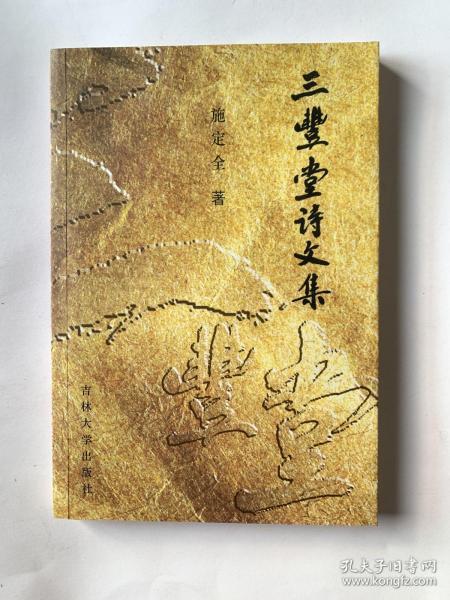 三豐堂诗文集
施定全 著
吉林大学出版社
孔夫子旧书网
www.kongfz.com